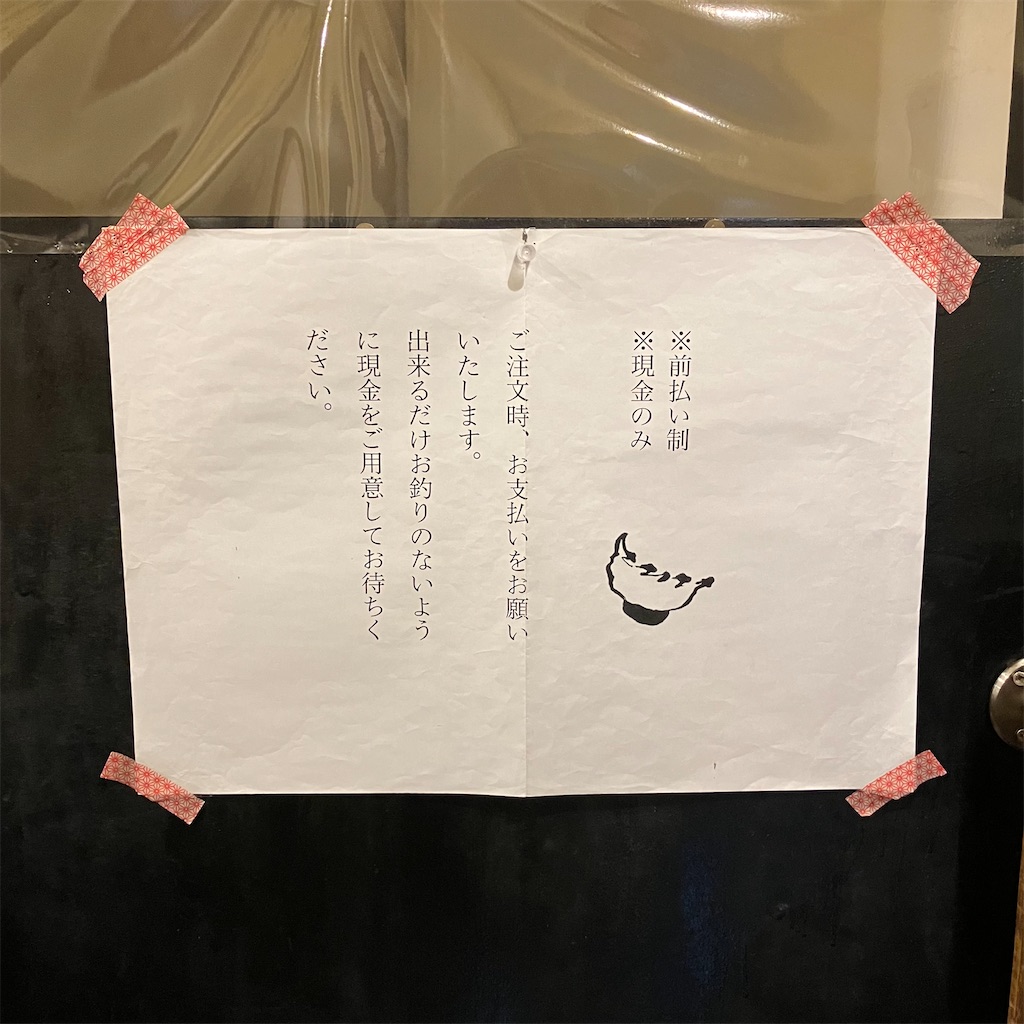 ※前払い制
※現金のみ
ご注文時、お支払いをお願い
いたします。
出来るだけお釣りのないよう
に現金をご用意してお待ちく
ださい。